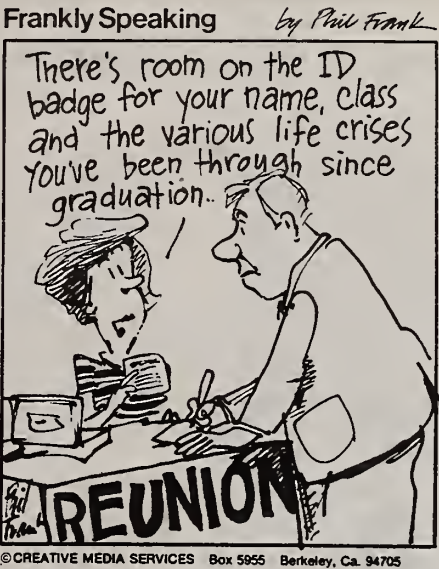 Frankly Speaking by Phil Frank
There's room on the ID
badge for your name, class
and the various life crises
you've been through since
graduation..
REUNION
Phil
Frank
© CREATIVE MEDIA SERVICES Box 5955 Berkeley, Ca. 94705